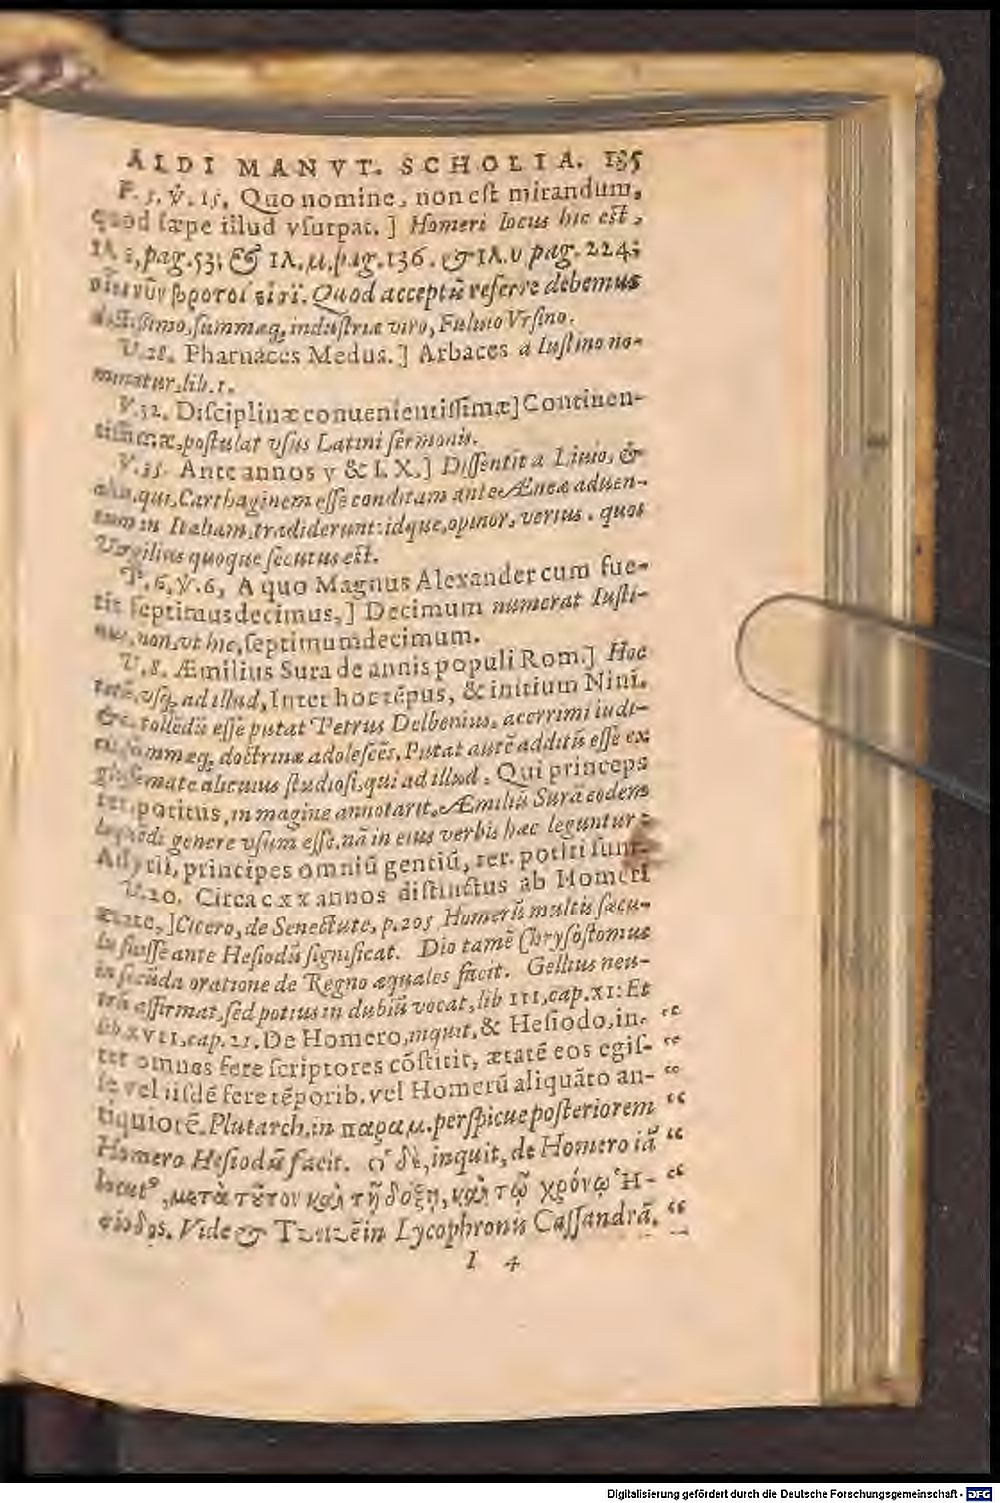 ALDI MANVT. SCHOLIA. 135
P. 5. V. 15. Quo nomine, non est mirandum,
quod sæpe illud vsurpat.] Homeri locus hic est,
pag. 53; & ΙΛ. μ. pag. 136. & ΙΛ. υ pag. 224;
οἷοι νῦν βροτοί εἰσι. Quod acceptū referre debemus
summæq; industriæ viro, Fuluio Vrsino.
V. 28. Pharnaces Medus.] Arbaces a Iustino no-
minatur, lib. 1.
V. 32. Disciplinæ conuenientissimæ] Continen-
tissimæ, postulat vsus Latini sermonis.
V. 35. Ante annos v & LX.] Dissentit a Liuio, &
alijs, qui, Carthaginem esse conditam ante Æneæ aduen-
tum in Italiam, tradiderunt: idque, opinor, verius. quos
Virgilius quoque secutus est.
P. 6, V. 6, A quo Magnus Alexander cum fue-
rit septimusdecimus,] Decimum numerat Iusti-
nus, non, vt hic, septimumdecimum.
V. 8. Æmilius Sura de annis populi Rom.] Hoc
totū, vsq; ad illud, Inter hoc tēpus, & initium Nini.
&c. tollēdū esse putat Petrus Delbenius, acerrimi iudi-
cij, summæq; doctrinæ adolescēs. Putat autē additū esse ex
glossemate alicuius studiosi, qui ad illud, Qui princeps
rer. potitus, in magine annotarit, Æmiliū Surā eodem
loquēdi genere vsum esse. nā in eius verbis hæc leguntur:
Assyrii, principes omniū gentiū, rer. potiti sunt.
V. 20. Circa cxx annos distinctus ab Homeri
ætate,] Cicero, de Senectute, p. 205 Homerū multis sæcu-
lis fuisse ante Hesiodū significat. Dio tamē Chrysostomus
in secūda oratione de Regno æquales facit. Gellius neu-
trū affirmat, sed potius in dubiū vocat, lib III, cap. XI: Et
lib XVII, cap. 21. De Homero, inquit, & Hesiodo, in- “
ter omnes fere scriptores cōstitit, ætatē eos egis- “
se vel iisdē fere tēporib. vel Homerū aliquāto an- “
tiquiorē. Plutarch. in παραμ. perspicue posteriorem “
Homero Hesiodū facit. ὁ δὲ, inquit, de Homero iā “
locut⁹, μετὰ τοῦτον καὶ τῇ δόξῃ, καὶ τῷ χρόνῳ Ἡ- “
σίοδος. Vide & Tzetzē in Lycophronis Cassandrā. “
I 4
Digitalisierung gefördert durch die Deutsche Forschungsgemeinschaft - DFG